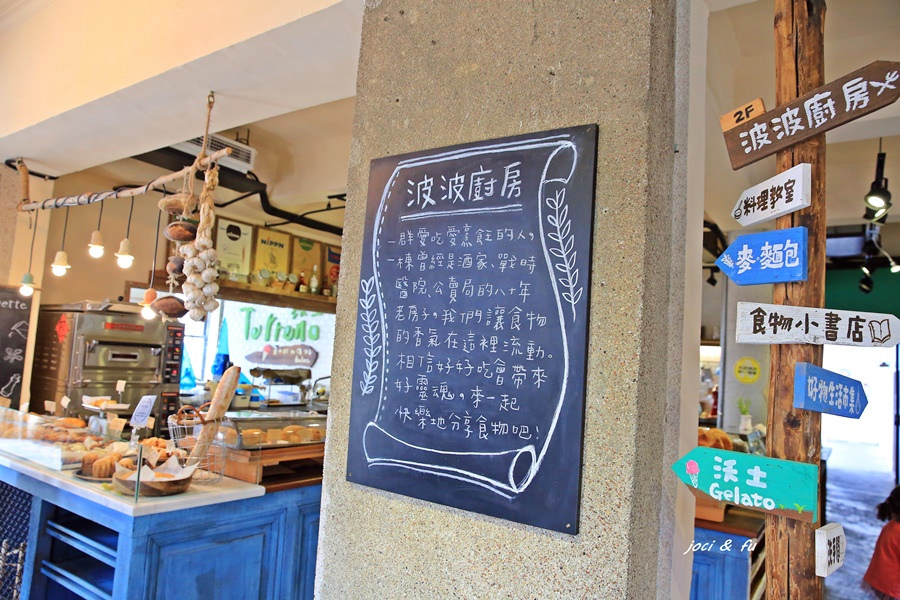 波波廚房
一群愛吃愛烹飪的人，
一棟曾經是酒家、戰時
醫院、公賣局的八十年
老房子，我們讓食物
的香氣在這裡流動。
相信好好吃會帶來
好靈魂，來一起
快樂地分享食物吧！
2F
波波廚房
料理教室
麥·麵包
食物小書店
好物生活市集
沃土
Gelato
NIPPON
joci & fu